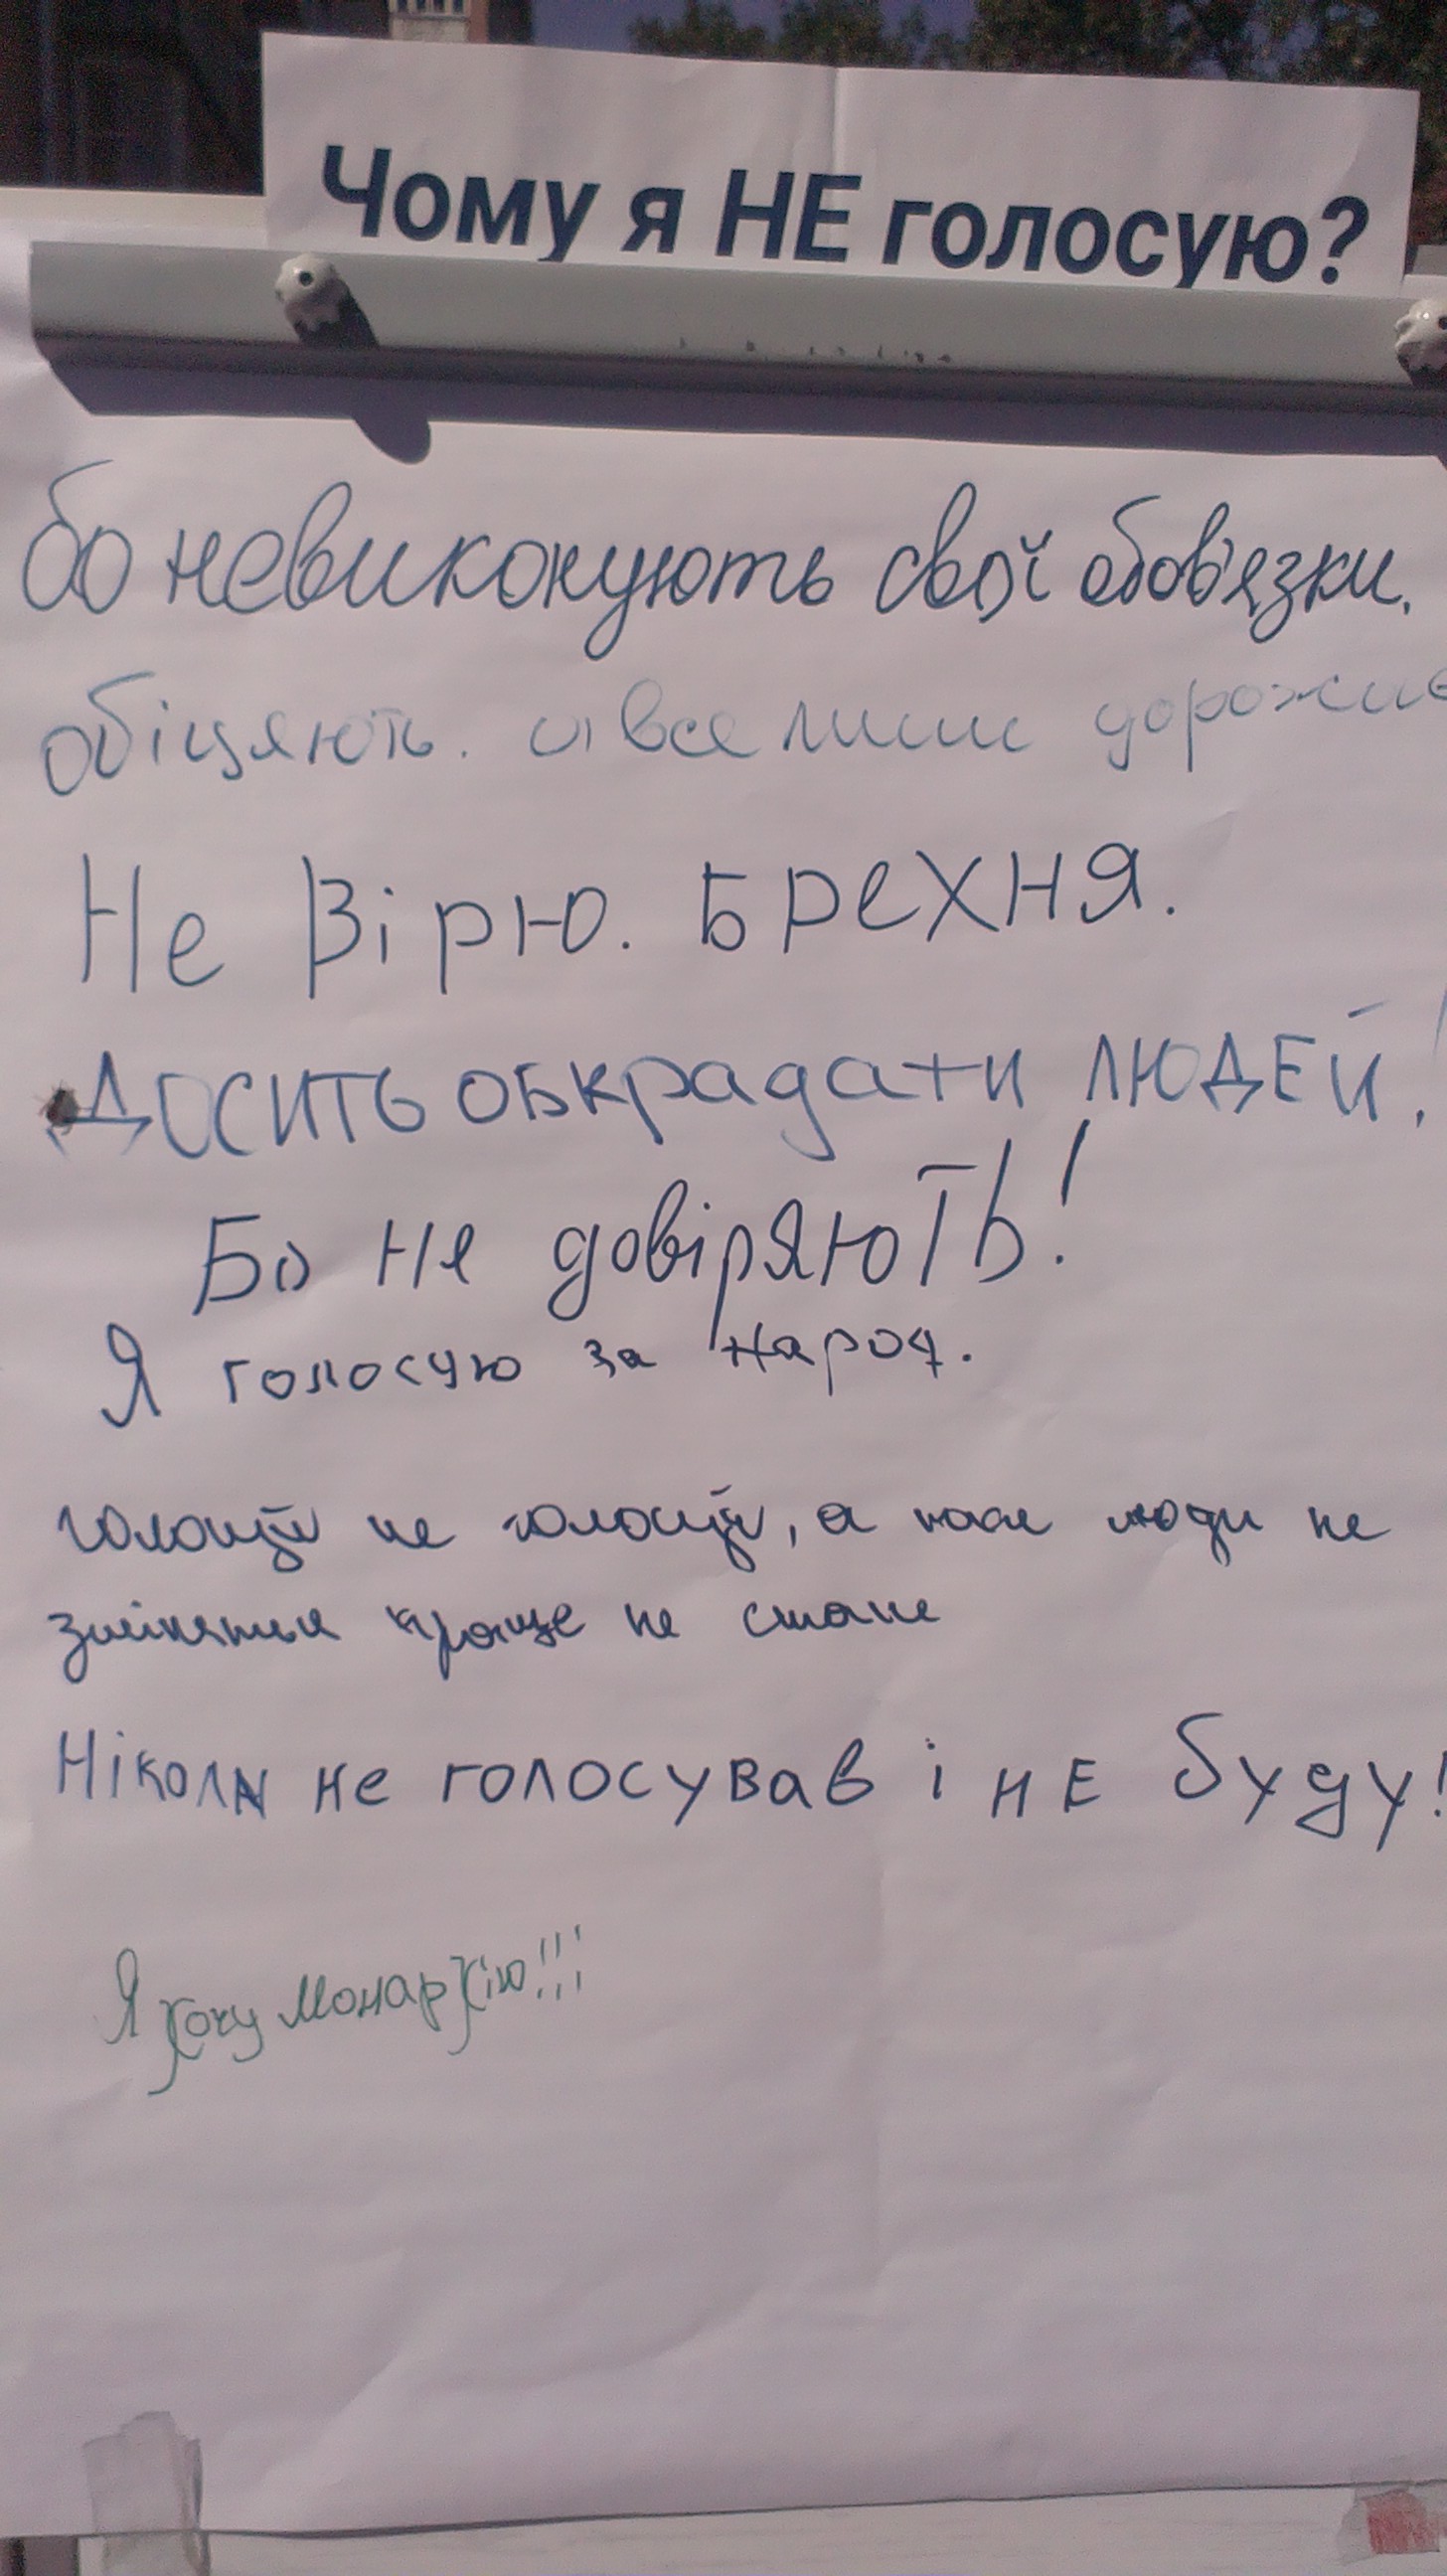 Чому я НЕ голосую?
бо невиконують свої обов'язки.
обіцяють. а все лиш дорожше
Не вірю. БРеХНЯ.
ДОСИТЬ обкрадати ЛЮДЕЙ!
Бо не довіряють!
Я голосую за народ.
голосуй не голосуй, а поки люди не
зміняться краще не стане
Ніколи не голосував і нЕ буду!
Я хочу Монархію!!!